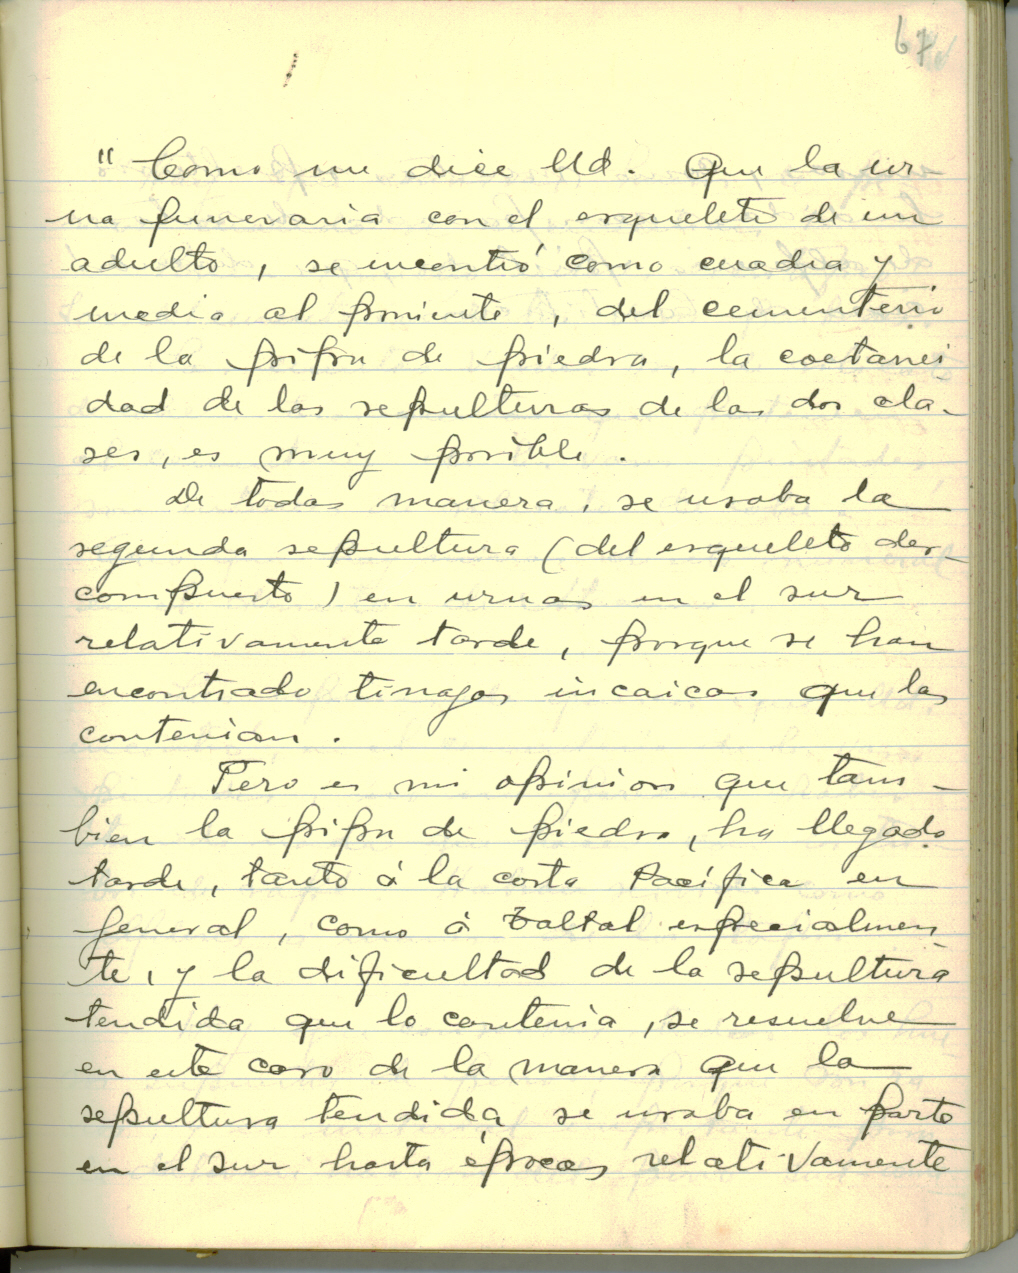 67
" Como me dice Ud. Que la ur-
na funeraria con el esqueleto de un
adulto, se encontró como cuadra y
media al poniente, del cementerio
de la pipa de piedra, la coetanei
dad de las sepulturas de las dos cla-
ses, es muy posible.
De todas manera, se usaba la
segunda sepultura (del esqueleto des-
compuesto) en urnas en el sur
relativamente tarde, porque se han
encontrado tinajas incaicas que las
contenian.
Pero es mi opinion que tam-
bien la pipa de piedra, ha llegado
tarde, tanto á la costa Pacífica en
general, como á Taltal especialmen
te, y la dificultad de la sepultura
tendida que lo contenia, se resuelve
en este caso de la manera que la
sepultura tendida se usaba en parte
en el sur hasta épocas relativamente